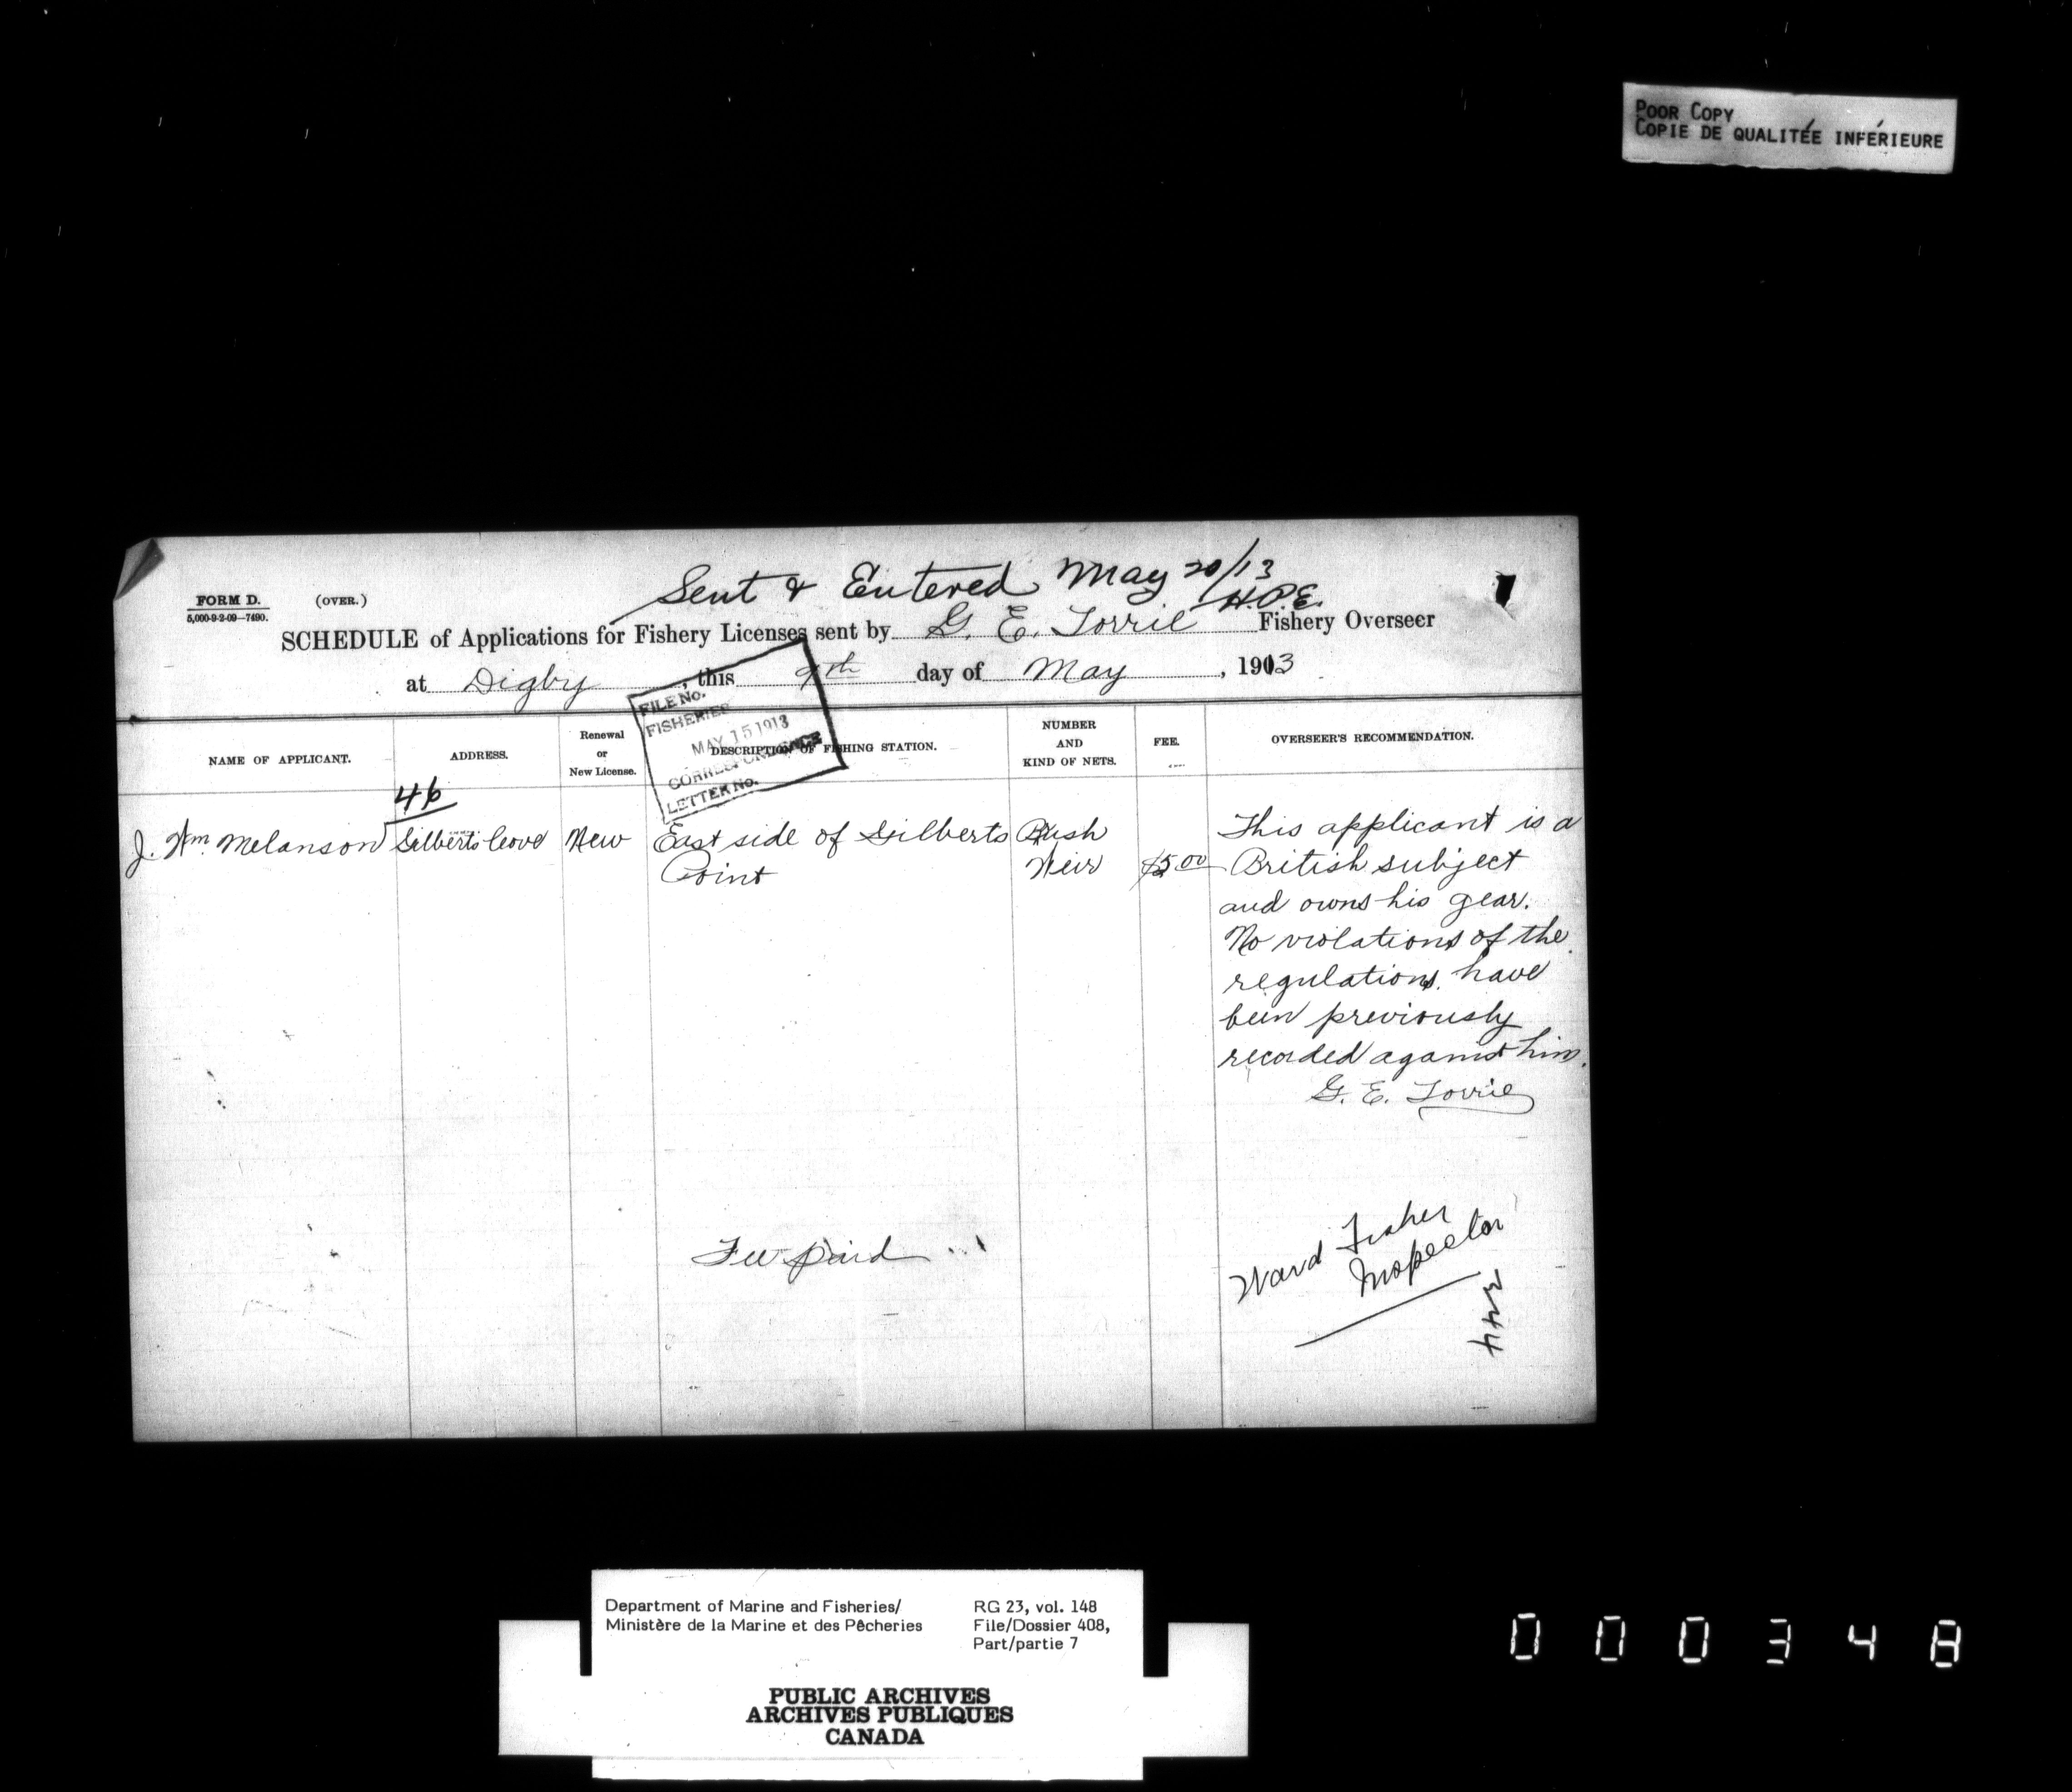 POOR COPY
COPIE DE QUALITÉE INFÉRIEURE
Sent & Entered May 20/13
H.P.E.
FORM D. (OVER.)
5,000-9-2-09—7490.
SCHEDULE of Applications for Fishery Licenses sent by G. E. Torrie Fishery Overseer
at Digby, this 9th day of May, 1913
FILE No.
FISHERIES
MAY 15 1913
CORRESPONDENCE
LETTER No.
NAME OF APPLICANT. ADDRESS. Renewal or New License. DESCRIPTION OF FISHING STATION. NUMBER AND KIND OF NETS. FEE. OVERSEER'S RECOMMENDATION.
46
J. Wm. Melanson Gilberts Cove New East side of Gilberts Point Brush Weir $5.00
This applicant is a
British subject
and owns his gear.
No violations of the
regulations have
been previously
recorded against him.
G. E. Torrie
Fee paid
Ward Fisher
Inspector
344
Department of Marine and Fisheries/
Ministère de la Marine et des Pêcheries
RG 23, vol. 148
File/Dossier 408,
Part/partie 7
PUBLIC ARCHIVES
ARCHIVES PUBLIQUES
CANADA
000348